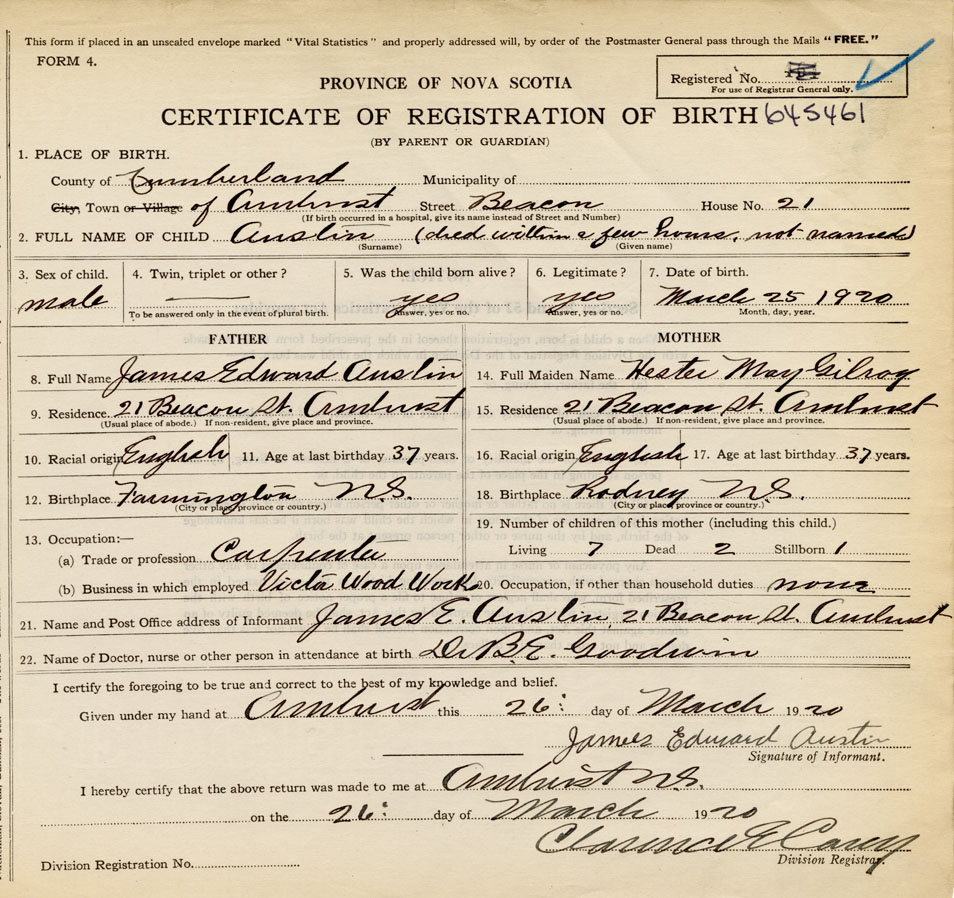 This form if placed in an unsealed envelope marked "Vital Statistics" and properly addressed will, by order of the Postmaster General pass through the Mails "FREE."
FORM 4.
Registered No.
For use of Registrar General only.
PROVINCE OF NOVA SCOTIA
CERTIFICATE OF REGISTRATION OF BIRTH 645461
(BY PARENT OR GUARDIAN)
1. PLACE OF BIRTH.
County of Cumberland Municipality of
City, Town or Village of Amherst Street Beacon House No. 21
(If birth occurred in a hospital, give its name instead of Street and Number)
2. FULL NAME OF CHILD Austin (died within a few hours, not named)
(Surname) (Given name)
3. Sex of child. 4. Twin, triplet or other? 5. Was the child born alive? 6. Legitimate? 7. Date of birth.
male — yes yes March 25 1920
To be answered only in the event of plural birth. Answer, yes or no. Answer, yes or no. Month, day, year.
FATHER MOTHER
8. Full Name James Edward Austin 14. Full Maiden Name Hester May Gilroy
9. Residence. 21 Beacon St. Amherst 15. Residence 21 Beacon St. Amherst
(Usual place of abode.) If non-resident, give place and province. (Usual place of abode.) If non-resident, give place and province.
10. Racial origin English 11. Age at last birthday 37 years. 16. Racial origin English 17. Age at last birthday 37 years.
12. Birthplace Farmington N.S. 18. Birthplace Rodney N.S.
(City or place, province or country.) (City or place, province or country.)
19. Number of children of this mother (including this child.)
13. Occupation:—
(a) Trade or profession Carpenter Living 7 Dead 2 Stillborn 1
(b) Business in which employed Victor Wood Work 20. Occupation, if other than household duties none
21. Name and Post Office address of Informant James E. Austin, 21 Beacon St. Amherst
22. Name of Doctor, nurse or other person in attendance at birth Dr B.E. Goodwin
I certify the foregoing to be true and correct to the best of my knowledge and belief.
Given under my hand at Amherst this 26: day of March 1920
James Edward Austin
Signature of Informant.
I hereby certify that the above return was made to me at Amherst N.S.
on the 26: day of March 1920
Clarence E Casey
Division Registrar.
Division Registration No.